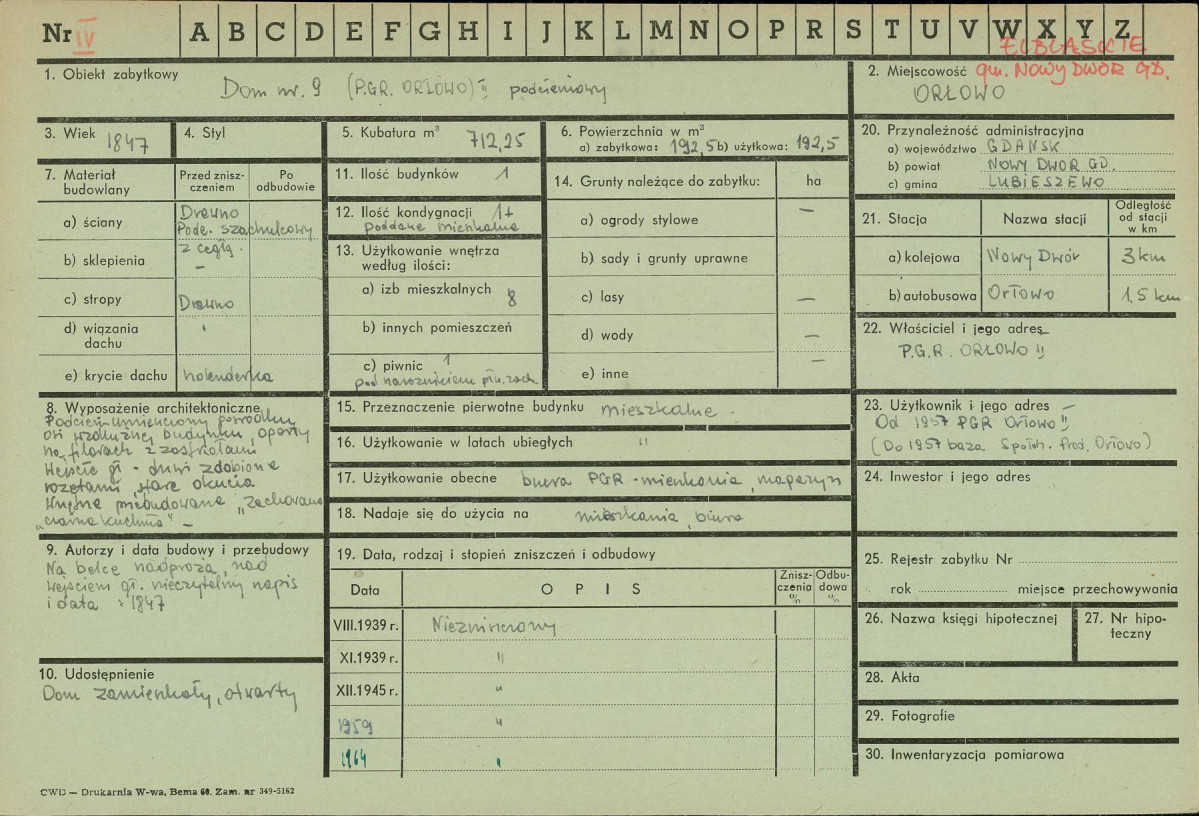 Nr IV A B C D E F G H I J K L M N O P R S T U V W X Y Z
ELBLĄSKIE
gm. NOWY DWÓR GD.
1. Obiekt zabytkowy
Dom nr. 9 (P.G.R. ORŁOWO) podcieniowy
2. Miejscowość
ORŁOWO
3. Wiek 1847
4. Styl
5. Kubatura m³ 712,25
6. Powierzchnia w m²
a) zabytkowa: 192,5 b) użytkowa: 192,5
7. Materiał budowlany
Przed zniszczeniem
Po odbudowie
a) ściany
Drewno
Podc. szachulcowy
z cegłą.
b) sklepienia –
c) stropy Drewno
d) wiązania dachu "
e) krycie dachu holenderka
8. Wyposażenie architektoniczne
Podcień umieszczony pośrodku
osi wzdłużnej budynku, oparty
na filarach z zastrzałami
Wejście gł. - drzwi zdobione
rozetami, stare okucia
Wnętrze przebudowane, zachowana
"czarna kuchnia" –
9. Autorzy i data budowy i przebudowy
Na belce nadproża, nad
wejściem gł. nieczytelny napis
i data : 1847
10. Udostępnienie
Dom zamieszkały, otwarty
11. Ilość budynków 1
12. Ilość kondygnacji 1+
poddasze mieszkalne
13. Użytkowanie wnętrza
według ilości:
a) izb mieszkalnych 8
b) innych pomieszczeń
c) piwnic 1
pod narożnikiem płn. zach.
14. Grunty należące do zabytku: ha
a) ogrody stylowe –
b) sady i grunty uprawne
c) lasy –
d) wody –
e) inne –
15. Przeznaczenie pierwotne budynku mieszkalne.
16. Użytkowanie w latach ubiegłych "
17. Użytkowanie obecne biura PGR - mieszkania, magazyn
18. Nadaje się do użycia na mieszkania, biura
19. Data, rodzaj i stopień zniszczeń i odbudowy
Data
OPIS
Zniszczenia %
Odbudowa %
VIII.1939 r. Niezniszczony
XI.1939 r. "
XII.1945 r. "
1959 "
1964 "
20. Przynależność administracyjna
a) województwo GDAŃSK
b) powiat NOWY DWÓR GD.
c) gmina LUBIESZEWO
21. Stacja
Nazwa stacji
Odległość od stacji w km
a) kolejowa Nowy Dwór 3 km
b) autobusowa Orłowo 1,5 km
22. Właściciel i jego adres
P.G.R. ORŁOWO
23. Użytkownik i jego adres –
Od 1957 PGR Orłowo
(Do 1957 baza Spółdz. Prod. Orłowo)
24. Inwestor i jego adres
25. Rejestr zabytku Nr
rok miejsce przechowywania
26. Nazwa księgi hipotecznej
27. Nr hipoteczny
28. Akta
29. Fotografie
30. Inwentaryzacja pomiarowa
CWD — Drukarnia W-wa, Bema 60. Zam. nr 349-5162